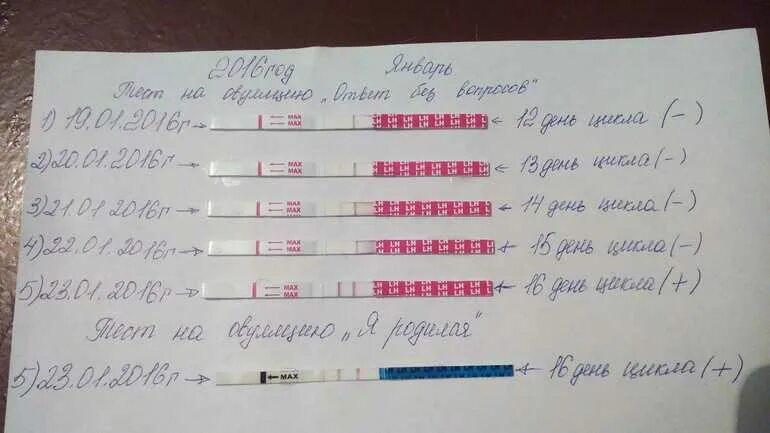 2016год Январь
Тест на овуляцию „Ответ без вопросов"
1) 19.01.2016г → ← MAX ← MAX LH LH LH LH LH LH LH ← 12 день цикла (-)
2) 20.01.2016г → ← MAX ← MAX LH LH LH LH LH LH LH ← 13 день цикла (-)
3) 21.01.2016г → ← MAX ← MAX LH LH LH LH LH LH LH ← 14 день цикла (-)
4) 22.01.2016г → ← MAX ← MAX LH LH LH LH LH LH LH ← 15 день цикла (-)
5) 23.01.2016г → ← MAX ← MAX LH LH LH LH LH LH LH ← 16 день цикла (+)
Тест на овуляцию „Я родилая"
5) 23.01.2016г → ← MAX LH LH LH LH LH LH LH ← 16 день цикла (+)